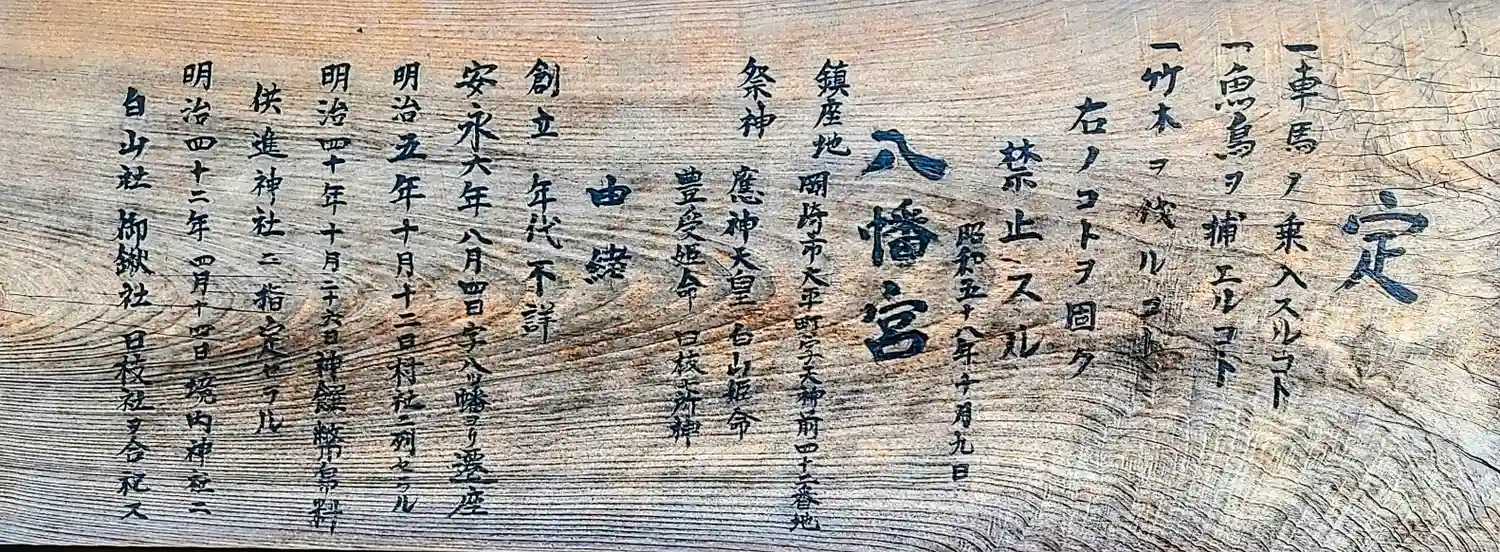 定
一車馬ヲ乗入スルコト
一魚鳥ヲ捕エルコト
一竹木ヲ伐ルコト
右ノコトヲ固ク
禁止スル
昭和五十八年十月九日
八幡宮
鎮座地 岡崎市大平町字天神前四十二番地
祭神 應神天皇 白山姫命
豊受姫命 日枝大所神
由緒
創立 年代不詳
安永六年八月四日字八ッ幡ヨリ遷座
明治五年十月十二日村社ニ列セラル
明治四十年十月二十六日神饌幣帛料
供進神社ニ指定セラル
明治四十二年四月十四日境内神社ニ
白山社 御鍬社 日枝社ヲ合祀ス